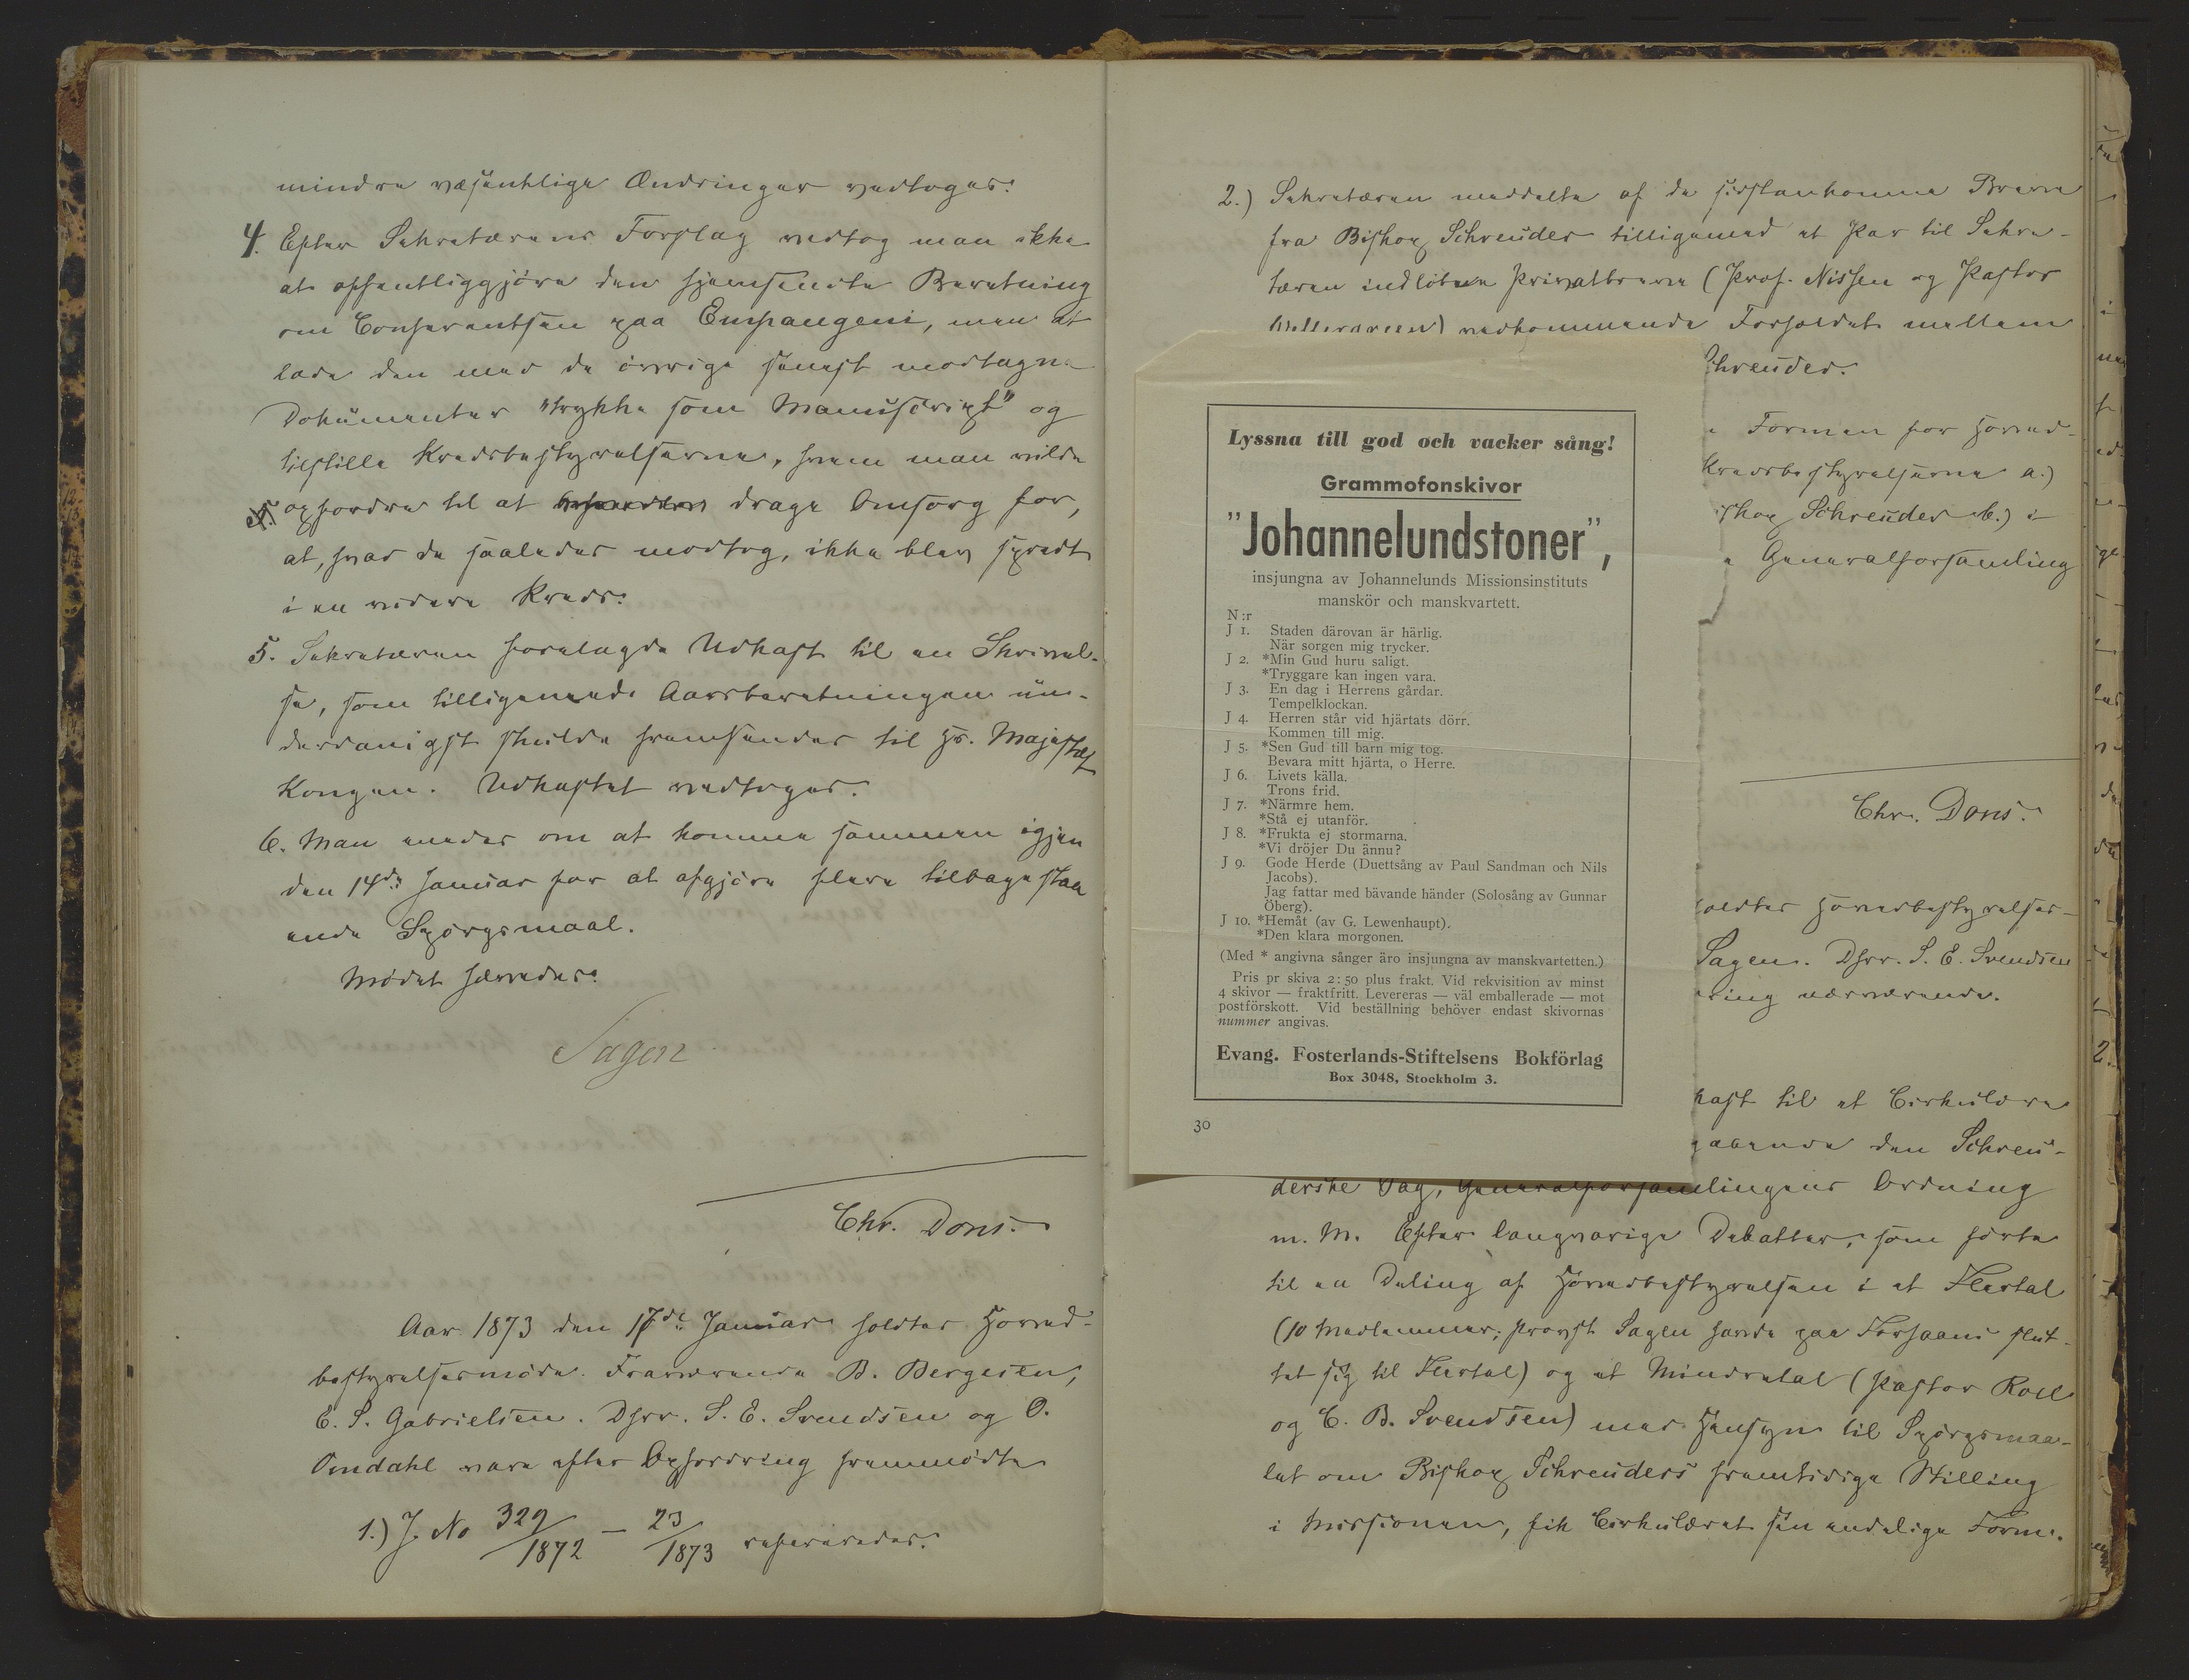 mindre væsentlige Ændringer vedtoges.
4. Efter Sekretærens Forslag vedtog man ikke
at offentliggjøre den hjemsendte Beretning
om Conferentsen paa Empangeni, men at
lade den med de övrige senest modtagne
Dokumenter "trykke som Manuscript" og
tilstille Kredsbestyrelserne, hvem man vilde
opfordre til at drage Omsorg for,
at, hvad de saaledes modtog, ikke blev spredt
i en videre Kreds.
5. Sekretæren forelagde Udkast til en Skrivel-
se, som tilligemed Aarsberetningen un-
derdanigst skulde fremsendes til Hs. Majestæt
Kongen. Udkastet vedtoges.
6. Man enedes om at komme sammen igjen
den 14de Januar for at afgjöre flere tilbagestaa
ende Spörgsmaal.
Mödet hævedes.
Sagen
Chr. Dons.
Aar 1873 den 17de Januar holdtes Hoved-
bestyrelsesmöde. Fraværende B. Bergesen,
E. S. Gabrielsen. Dhrr. S. E. Svendsen og O.
Omdahl vare efter Opfordring fremmödte
1.) J. No 329/1872 — 23/1873 refereredes.
2.) Sekretæren meddelte af de sidstankomne Breve
fra Biskop Schreuder tilligemed et Par til Sekre-
tæren indlöbne Privatbreve (Prof. Nissen og Pastor
vedkommende Forholdet mellem
chreuder.
Formen for Hoved-
Kredsbestyrelserne a.)
iskop Schreuder b.) i
Generalforsamling
Chr. Dons.
holdtes Hovedbestyrelses-
Sagen. Dhrr. S. E. Svendsen
ring nærværende.
kast til et Cirkulære
gaaende den Schreu-
derske Sag, Generalforsamlingens Ordning
m. M. Efter langvarige Debatter, som förte
til en Deling af Hovedbestyrelsen i et Flertal
(10 Medlemmer; Provst Sagen havde paa Forhaand slut-
tet sig til Flertal) og et Mindretal (Pastor Roll
og C. B. Svendsen) med Hensyn til Spörgsmaa-
let om Biskop Schreuders fremtidige Stilling
i Missionen, fik Cirkulæret sin endelige Form.
Lyssna till god och vacker sång!
Grammofonskivor
"Johannelundstoner",
insjungna av Johannelunds Missionsinstituts
manskör och manskvartett.
N:r
J 1. Staden därovan är härlig.
När sorgen mig trycker.
J 2. *Min Gud huru saligt.
*Tryggare kan ingen vara.
J 3. En dag i Herrens gårdar.
Tempelklockan.
J 4. Herren står vid hjärtats dörr.
Kommen till mig.
J 5. *Sen Gud till barn mig tog.
Bevara mitt hjärta, o Herre.
J 6. Livets källa.
Trons frid.
J 7. *Närmre hem.
*Stå ej utanför.
J 8. *Frukta ej stormarna.
*Vi dröjer Du ännu?
J 9. Gode Herde (Duettsång av Paul Sandman och Nils
Jacobs).
Jag fattar med bävande händer (Solosång av Gunnar
Öberg).
J 10. *Hemåt (av G. Lewenhaupt).
*Den klara morgonen.
(Med * angivna sånger äro insjungna av manskvartetten.)
Pris pr skiva 2:50 plus frakt. Vid rekvisition av minst
4 skivor — fraktfritt. Levereras — väl emballerade — mot
postförskott. Vid beställning behöver endast skivornas
nummer angivas.
Evang. Fosterlands-Stiftelsens Bokförlag
Box 3048, Stockholm 3.
30